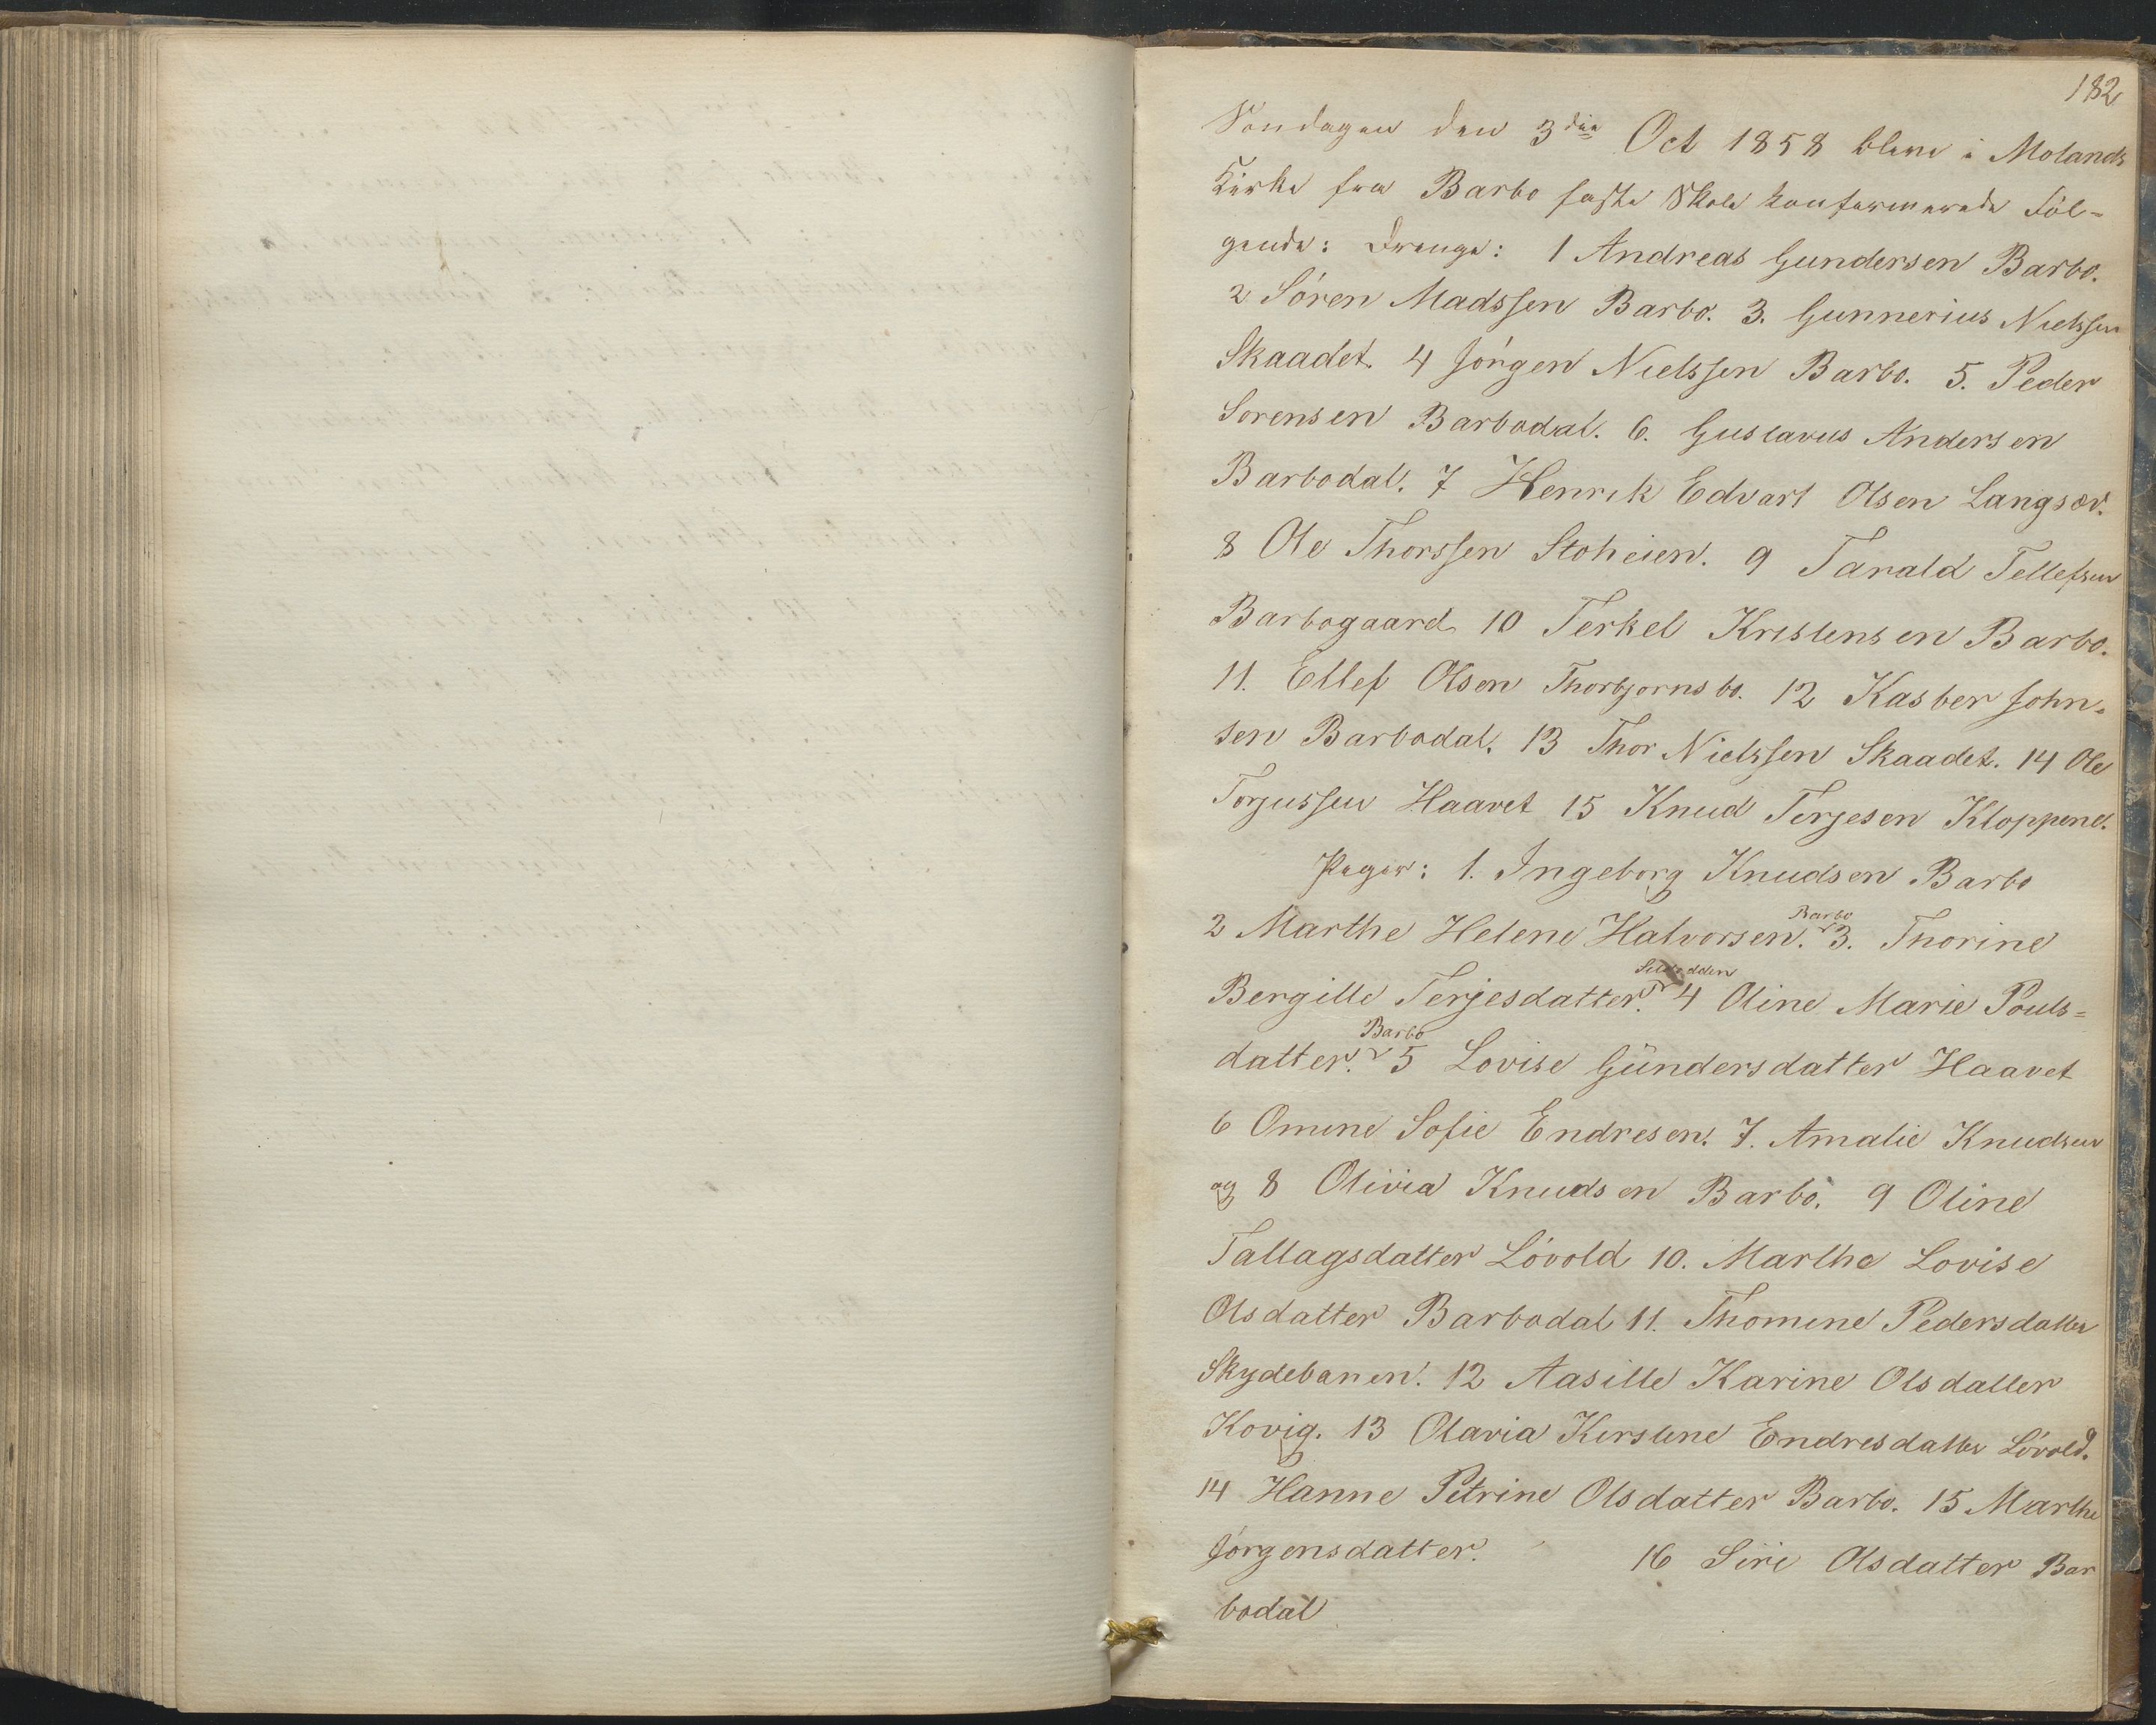 182
Søndagen den 3die Oct 1858 bleve i Molands
Kirke fra Barbo faste Skole konfermerede Föl-
gende: Drenge: 1 Andreas Gundersen Barbo.
2 Sören Madssen Barbo. 3. Gunnerius Nielssen
Skaadet. 4 Jörgen Nielssen Barbo. 5. Peder
Sorensen Barbodal. 6. Gustavus Andersen
Barbodal. 7 Henrik Edvart Olsen Langsæ.
8 Ole Thorssen Stoheien. 9 Tarald Tellefsen
Barbogaard 10 Terkel Kristensen Barbo.
11. Ellef Olsen Thorbjornsbo. 12 Kasber John-
sen Barbodal. 13 Thor Nielssen Skaadet. 14 Ole
Torjussen Haavet 15 Knud Terjesen Kloppene.
Piger: 1. Ingeborg Knudsen Barbo
2 Marthe Helene Halvorsen. Barbo 3. Thorine
Bergille Terjesdatter. 4 Oline Marie Pouls-
datter. Barbo 5 Lovise Gündersdatter Haavet
6 Omine Sofie Endresen. 7. Amalie Knudsen
og 8 Olivia Knudsen Barbo. 9 Oline
Tallagsdatter Lövold 10. Marthe Lovise
Olsdatter Barbodal 11. Thomine Pedersdatter
Skydebanen. 12 Aasille Karine Olsdatter
Kovig. 13 Olavia Kirstene Endresdatter Lövold.
14 Hanne Petrine Olsdatter Barbo. 15 Marthe
Jörgensdatter. 16 Siri Olsdatter Bar
bodal